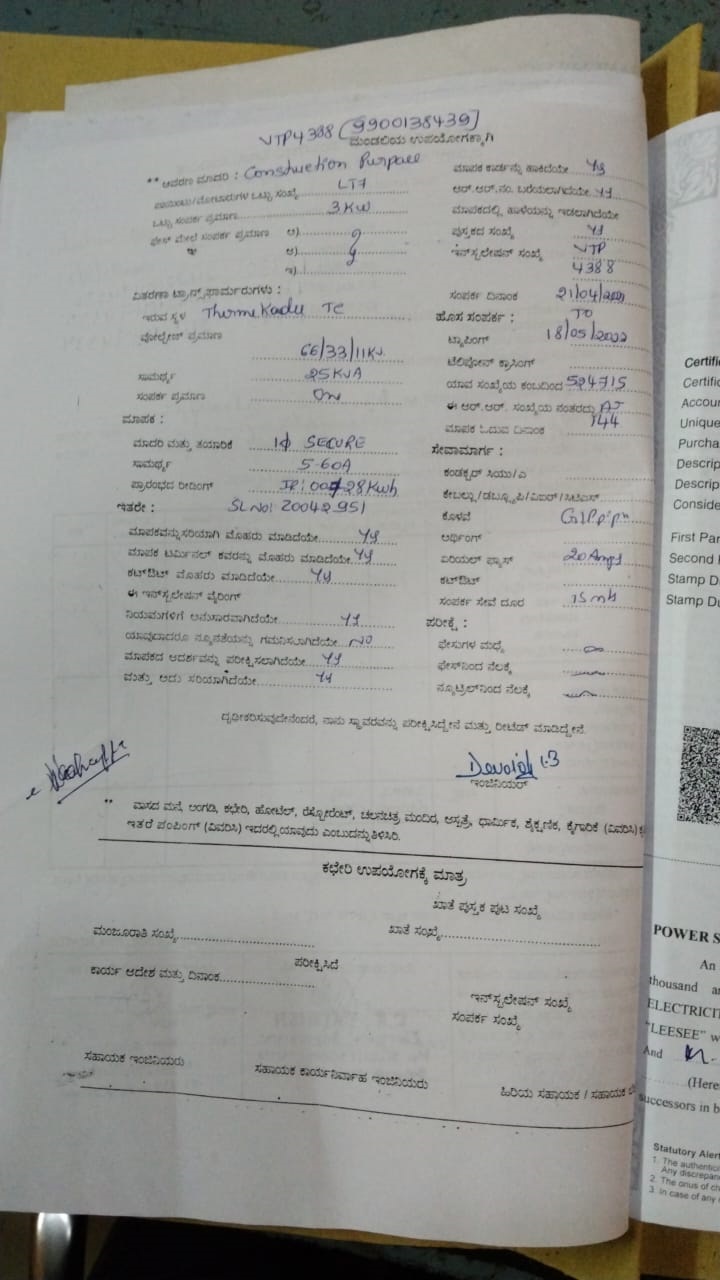 VTP4388 (9900138439)
ಮಂಡಲಿಯ ಉಪಯೋಗಕ್ಕಾಗಿ
** ಆವರಣ ಮಾದರಿ : Constuction Purpose
ಒಟ್ಟು ಸಂಖ್ಯೆ LT7
ಒಟ್ಟು ಸಂಪರ್ಕ ಪ್ರಮಾಣ 3KW
ಫೇಸ್ ಮೇಲೆ ಸಂಪರ್ಕ ಪ್ರಮಾಣ ಅ)
ಆ)
ಇ)
ವಿತರಣಾ ಟ್ರಾನ್ಸ್‌ಫಾರ್ಮರುಗಳು :
ಇರುವ ಸ್ಥಳ Thomekadu TC
ವೋಲ್ಟೇಜ್ ಪ್ರಮಾಣ
66/33/11KV
ಸಾಮರ್ಥ್ಯ 25KVA
ಸಂಪರ್ಕ ಪ್ರಮಾಣ
ಮಾಪಕ :
ಮಾದರಿ ಮತ್ತು ತಯಾರಿಕೆ 1Φ SECURE
ಸಾಮರ್ಥ್ಯ 5-60A
ಪ್ರಾರಂಭದ ರೀಡಿಂಗ್ 28Kwh
ಇತರೇ : SL No: 20042951
ಮಾಪಕವನ್ನು ಸರಿಯಾಗಿ ಮೊಹರು ಮಾಡಿದೆಯೇ yy
ಮಾಪಕ ಟರ್ಮಿನಲ್ ಕವರನ್ನು ಮೊಹರು ಮಾಡಿದೆಯೇ yy
ಕಟ್‌ಔಟ್ ಮೊಹರು ಮಾಡಿದೆಯೇ yy
ಈ ಇನ್‌ಸ್ಟಲೇಷನ್ ವೈರಿಂಗ್
ನಿಯಮಗಳಿಗೆ ಅನುಸಾರವಾಗಿದೆಯೇ yy
ಯಾವುದಾದರೂ ನ್ಯೂನತೆಯನ್ನು ಗಮನಿಸಲಾಗಿದೆಯೇ NO
ಮಾಪಕದ ಆದರ್ಶವನ್ನು ಪರೀಕ್ಷಿಸಲಾಗಿದೆಯೇ yy
ಮತ್ತು ಅದು ಸರಿಯಾಗಿದೆಯೇ yy
ಮಾಪಕ ಕಾರ್ಡನ್ನು ಹಾಕಿದೆಯೇ yy
ಆರ್.ಆರ್.ನಂ. ಬರೆಯಲಾಗಿದೆಯೇ yy
ಮಾಪಕದಲ್ಲಿ ಹಾಳೆಯನ್ನು ಇಡಲಾಗಿದೆಯೇ
ಪುಸ್ತಕದ ಸಂಖ್ಯೆ yy
ಇನ್‌ಸ್ಟಲೇಷನ್ ಸಂಖ್ಯೆ VTP
4388
ಸಂಪರ್ಕ ದಿನಾಂಕ 21/04/2021
ಹೊಸ ಸಂಪರ್ಕ : TO
ಟ್ಯಾಪಿಂಗ್ 18/05/2022
ಟೆಲಿಫೋನ್ ಕ್ರಾಸಿಂಗ್
ಯಾವ ಸಂಖ್ಯೆಯ ಕಂಬದಿಂದ 524715
ಈ ಆರ್.ಆರ್. ಸಂಖ್ಯೆಯ ನಂತರದ್ದು AJ
ಮಾಪಕ ಓದುವ ದಿನಾಂಕ 144
ಸೇವಾಮಾರ್ಗ :
ಕಂಡಕ್ಟರ್ ಸಿಯು/ಎ
ಕೇಬಲ್ಲು/ಡಬ್ಲ್ಯೂಪಿ/ವಿಐಆರ್/ಸಿಟಿಎಸ್
ಕೊಳವೆ GI Pipe
ಅರ್ಥಿಂಗ್
ಏರಿಯಲ್ ಫ್ಯೂಸ್ 20 Amps
ಕಟ್‌ಔಟ್
ಸಂಪರ್ಕ ಸೇವೆ ದೂರ 15 mts
ಪರೀಕ್ಷೆ :
ಫೇಸುಗಳ ಮಧ್ಯೆ
ಫೇಸ್‌ನಿಂದ ನೆಲಕ್ಕೆ
ನ್ಯೂಟ್ರಲ್‌ನಿಂದ ನೆಲಕ್ಕೆ
ದೃಢೀಕರಿಸುವುದೇನೆಂದರೆ, ನಾನು ಸ್ಥಾವರವನ್ನು ಪರೀಕ್ಷಿಸಿದ್ದೇನೆ ಮತ್ತು ರೀಟೆಡ್ ಮಾಡಿದ್ದೇನೆ.
ಇಂಜಿನಿಯರ್
** ವಾಸದ ಮನೆ, ಅಂಗಡಿ, ಕಛೇರಿ, ಹೋಟೆಲ್, ರೆಸ್ಟೋರೆಂಟ್, ಚಲನಚಿತ್ರ ಮಂದಿರ, ಆಸ್ಪತ್ರೆ, ಧಾರ್ಮಿಕ, ಶೈಕ್ಷಣಿಕ, ಕೈಗಾರಿಕೆ (ವಿವರಿಸಿ)
ಇತರೆ ಪಂಪಿಂಗ್ (ವಿವರಿಸಿ) ಇದರಲ್ಲಿ ಯಾವುದು ಎಂಬುದನ್ನು ತಿಳಿಸಿರಿ.
ಕಛೇರಿ ಉಪಯೋಗಕ್ಕೆ ಮಾತ್ರ
ಖಾತೆ ಪುಸ್ತಕ ಪುಟ ಸಂಖ್ಯೆ
ಮಂಜೂರಾತಿ ಸಂಖ್ಯೆ ಖಾತೆ ಸಂಖ್ಯೆ
ಪರೀಕ್ಷಿಸಿದೆ
ಕಾರ್ಯ ಆದೇಶ ಮತ್ತು ದಿನಾಂಕ
ಇನ್‌ಸ್ಟಲೇಷನ್ ಸಂಖ್ಯೆ
ಸಂಪರ್ಕ ಸಂಖ್ಯೆ
ಸಹಾಯಕ ಇಂಜಿನಿಯರು ಸಹಾಯಕ ಕಾರ್ಯನಿರ್ವಾಹ ಇಂಜಿನಿಯರು ಹಿರಿಯ ಸಹಾಯಕ / ಸಹಾಯಕ
Certific
Certific
Accour
Unique
Purcha
Descrip
Descrip
Conside
First Par
Second
Stamp D
Stamp Du
POWER S
An
thousand a
ELECTRICIT
"LEESEE" w
And
(Here
successors in b
Statutory Alert
1. The authentic
Any discrepan
2. The onus of ch
3. In case of any